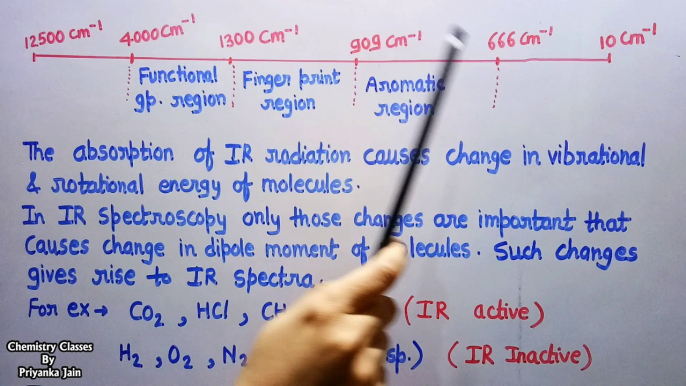 12500 cm⁻¹ 4000 cm⁻¹ 1300 cm⁻¹ 909 cm⁻¹ 666 cm⁻¹ 10 cm⁻¹
Functional Finger print Aromatic
gp. region region region
The absorption of IR radiation causes change in vibrational
& rotational energy of molecules.
In IR spectroscopy only those changes are important that
causes change in dipole moment of molecules. Such changes
gives rise to IR spectra.
For ex → CO₂ , HCl , (IR active)
H₂ , O₂ , N₂ sp.) (IR Inactive)
Chemistry Classes
By
Priyanka Jain